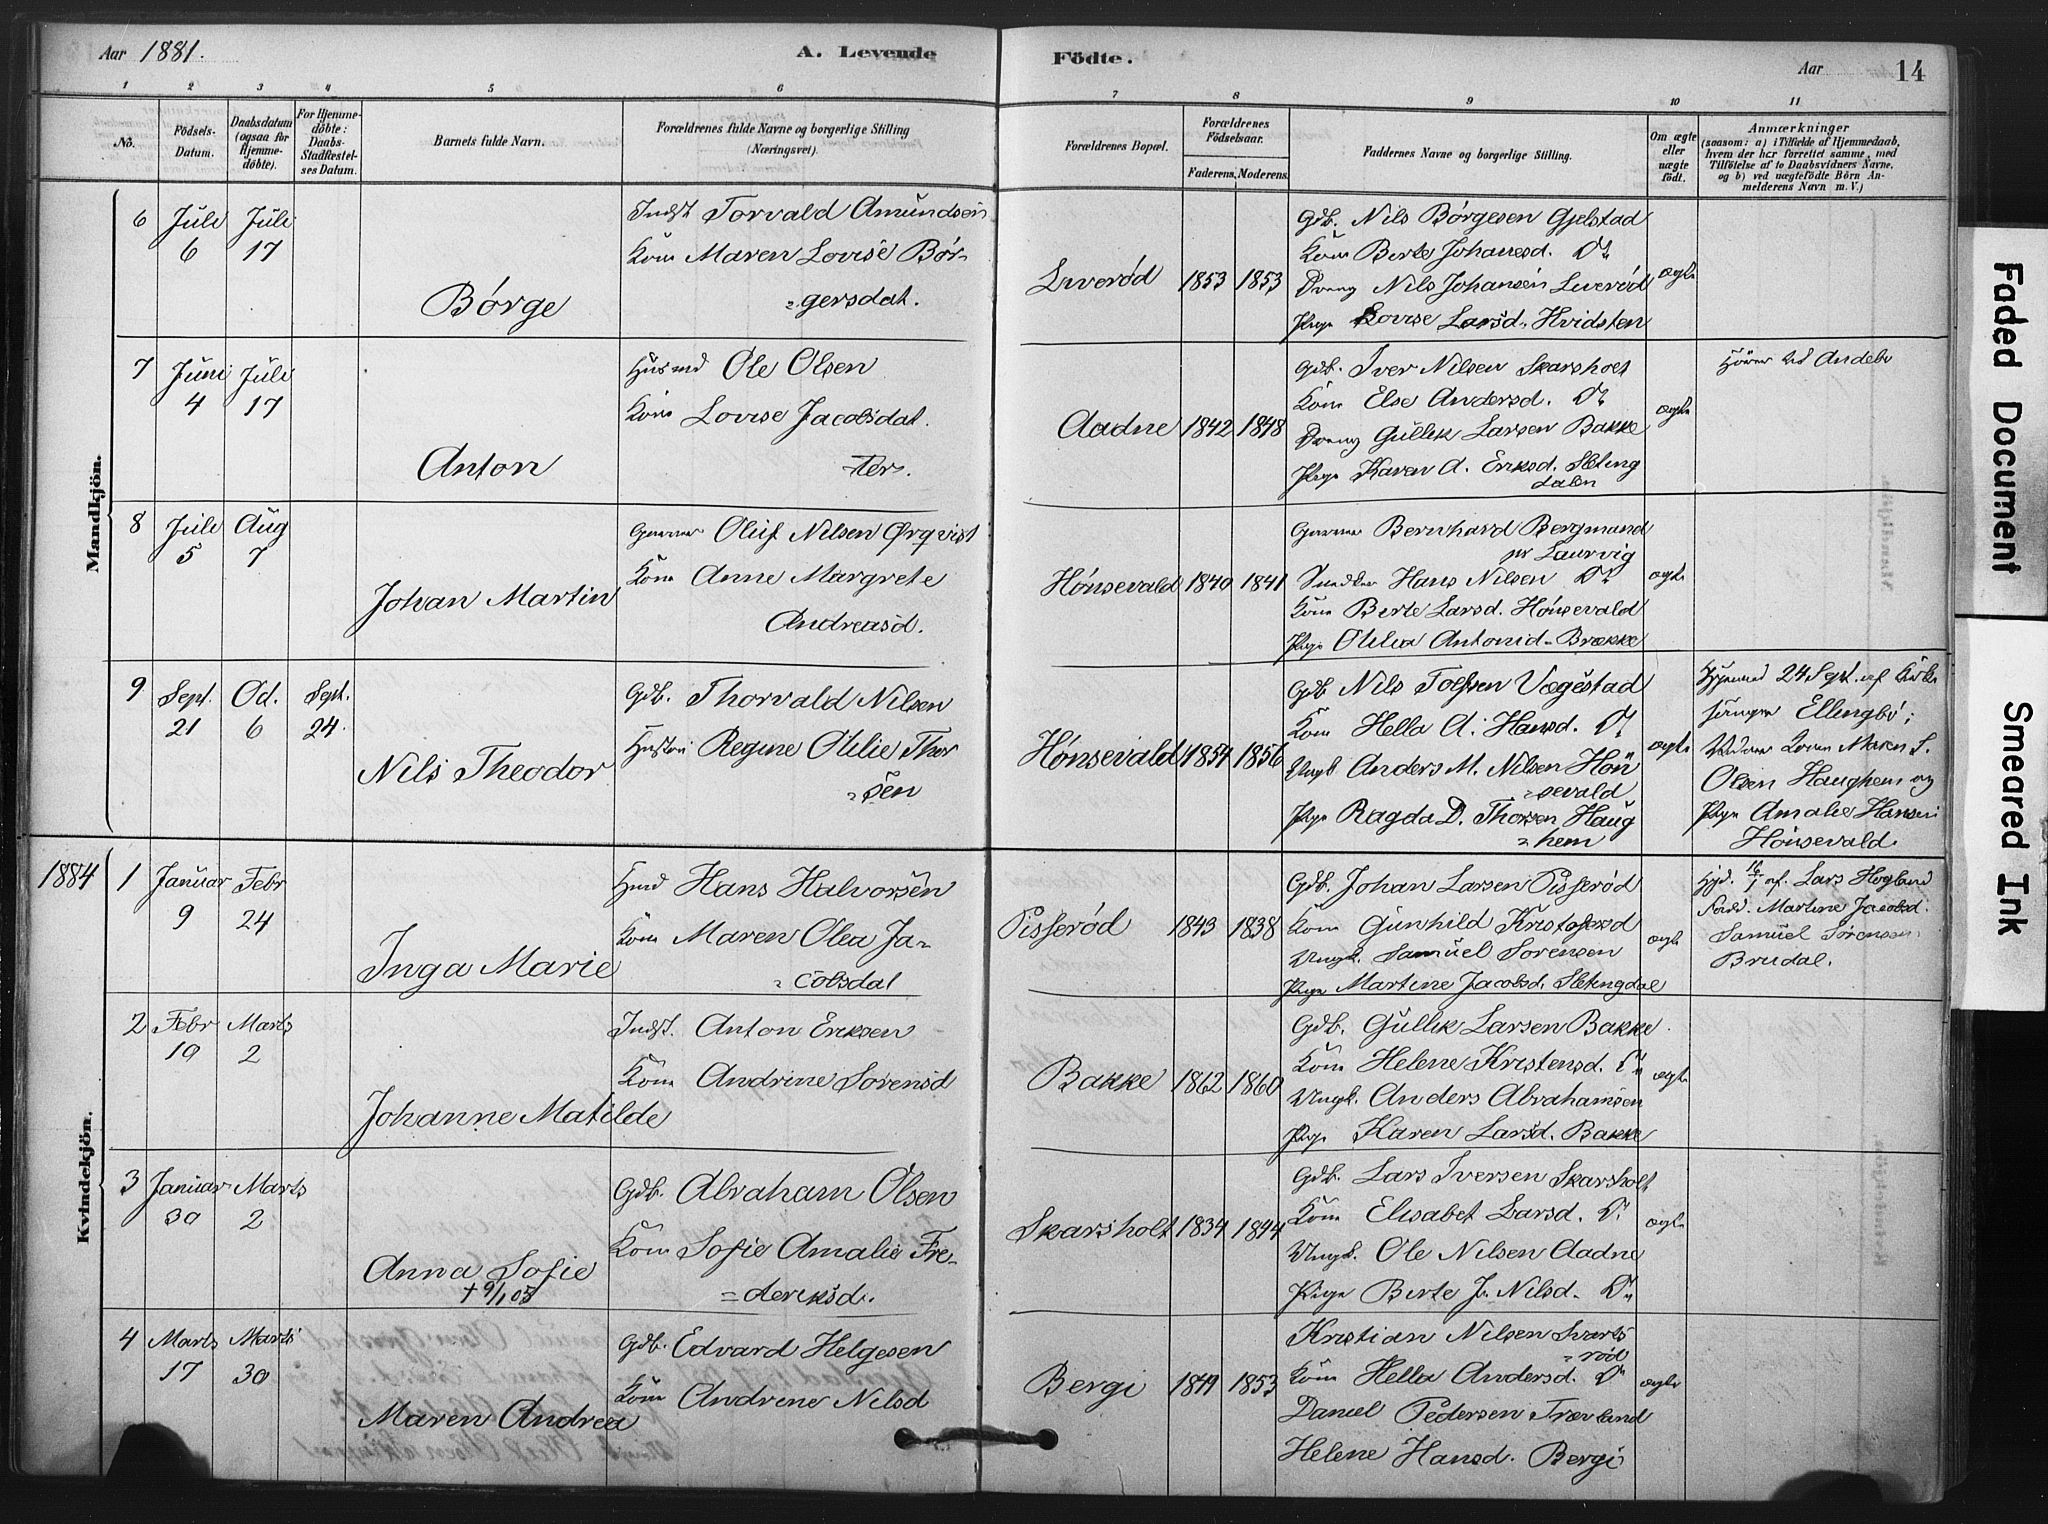 Aar 1881.
A. Levende
Födte.
Aar
14
1
2
3
4
5
6
7
8
9
10
11
No.
Födsels-
Datum.
Daabsdatum
(ogsaa for
Hjemme-
döbte).
For Hjemme-
döbte:
Daabs-
Stadfæstel-
ses Datum.
Barnets fulde Navn.
Forældrenes fulde Navne og borgerlige Stilling
(Næringsvei).
Forældrenes Bopæl.
Forældrenes
Födselsaar.
Faderens.
Moderens.
Faddernes Navne og borgerlige Stilling.
Om ægte
eller
uægte
födt.
Anmærkninger
(saasom: a) i Tilfælde af Hjemmedaab,
hvem der har forrettet samme, med
Tilföielse af to Daabsvidners Navne,
og b) ved uægtefödte Börn An-
melderens Navn m. V.)
Mandkjön.
6
Juli
6
Juli
17
Børge
Indst Torvald Amundsen
Kone Maren Lovise Bør-
gersdat.
Liverød
1853
1853
Gdb. Nils Børgesen Gjelstad
Kone Berte Johansd. Do
Dreng Nils Johansen Liverød
Pige Lovise Larsd. Hvidsten
ægte
7
Juni
4
Juli
17
Anton
Husmd Ole Olsen
Kone Lovise Jacobsdat.
ter.
Aadne
1842
1848
Gdb. Iver Nilsen Skarsholt
Kone Else Andersd. Do
Dreng Gullik Larsen Bakke
Pige Karen A. Eriksd. Sleting
dalen
ægte
Hører til Andebu
8
Juli
5
Aug
7
Johan Martin
Garver Oluf Nilsen Ørqvist
Kone Anne Margrete
Andreasd.
Hónsevald
1840
1841
Garver Bernhard Bergmand
pr Laurvig
Snedker Hans Nilsen Do
Kone Berte Larsd. Hónsevald
Pige Otilia Antonid. Brække
ægte
9
Sept.
21
Oct.
6
Sept.
24
Nils Theodor
Gdb. Thorvald Nilsen
Hustru Regine Otilie Thor
sen
Hónsevald
1854
1856
Gdb Nils Tolfsen Vegestad
Kone Hella A. Hansd. Do
Ungk Anders M. Nilsen Hón
sevald
Pige Ragda D. Thorsen Haug
hem
ægte
24 Sept. af Kirke
sanger Ellingbø;
Maren S.
Olsen Haughem og
Pige Amalie Hansen
Hónsevald.
1884
Kvindekjön.
1
Januar
9
Febr
24
Inga Marie
Hmd Hans Halvorsen
Kone Maren Olea Ja-
cobsdat
Pisserød
1843
1838
Gdb. Johan Larsen Pisserød
Kone Gunhild Kristofersd
Ungk. Samuel Sorensen
Pige Martine Jacobsd. Sletingdal
ægte
Hjd. 16/1 af. Lars Hogland
Fadd. Martine Jacobsd.
Samuel Sørensen
Brudal.
2
Febr
19
Marts
2
Johanne Matilde
Indst. Anton Eriksen
Kone Andrine Sorensd
Bakke
1862
1860
Gdb. Gullik Larsen Bakke.
Kone Helene Kristensd. Do
Ungk. Anders Abrahamsen
Pige Karen Larsd. Bakke
ægte
3
Januar
30
Marts
2
Anna Sofie
+ 9/1 05
Gdb. Abraham Olsen
Kone Sofie Amalie Fre-
deriksd.
Skarsholt
1834
1844
Gdb. Lars Iversen Skarsholt
Kone Elisabet Larsd. Do
Ungk. Ole Nilsen Aadne
Pige Berte J. Nilsd. Do
ægte
4
Marts
17
Marts
30
Maren Andrea
Gdb. Edvard Helgesen
Kone Andrine Nilsd
Bergi
1849
1853
Kristian Nilsen Svarts
rød
Kone Hella Andersd. Do
Daniel Pedersen Træland
Helene Hansd. Bergi
ægte
Faded Document
Smeared Ink